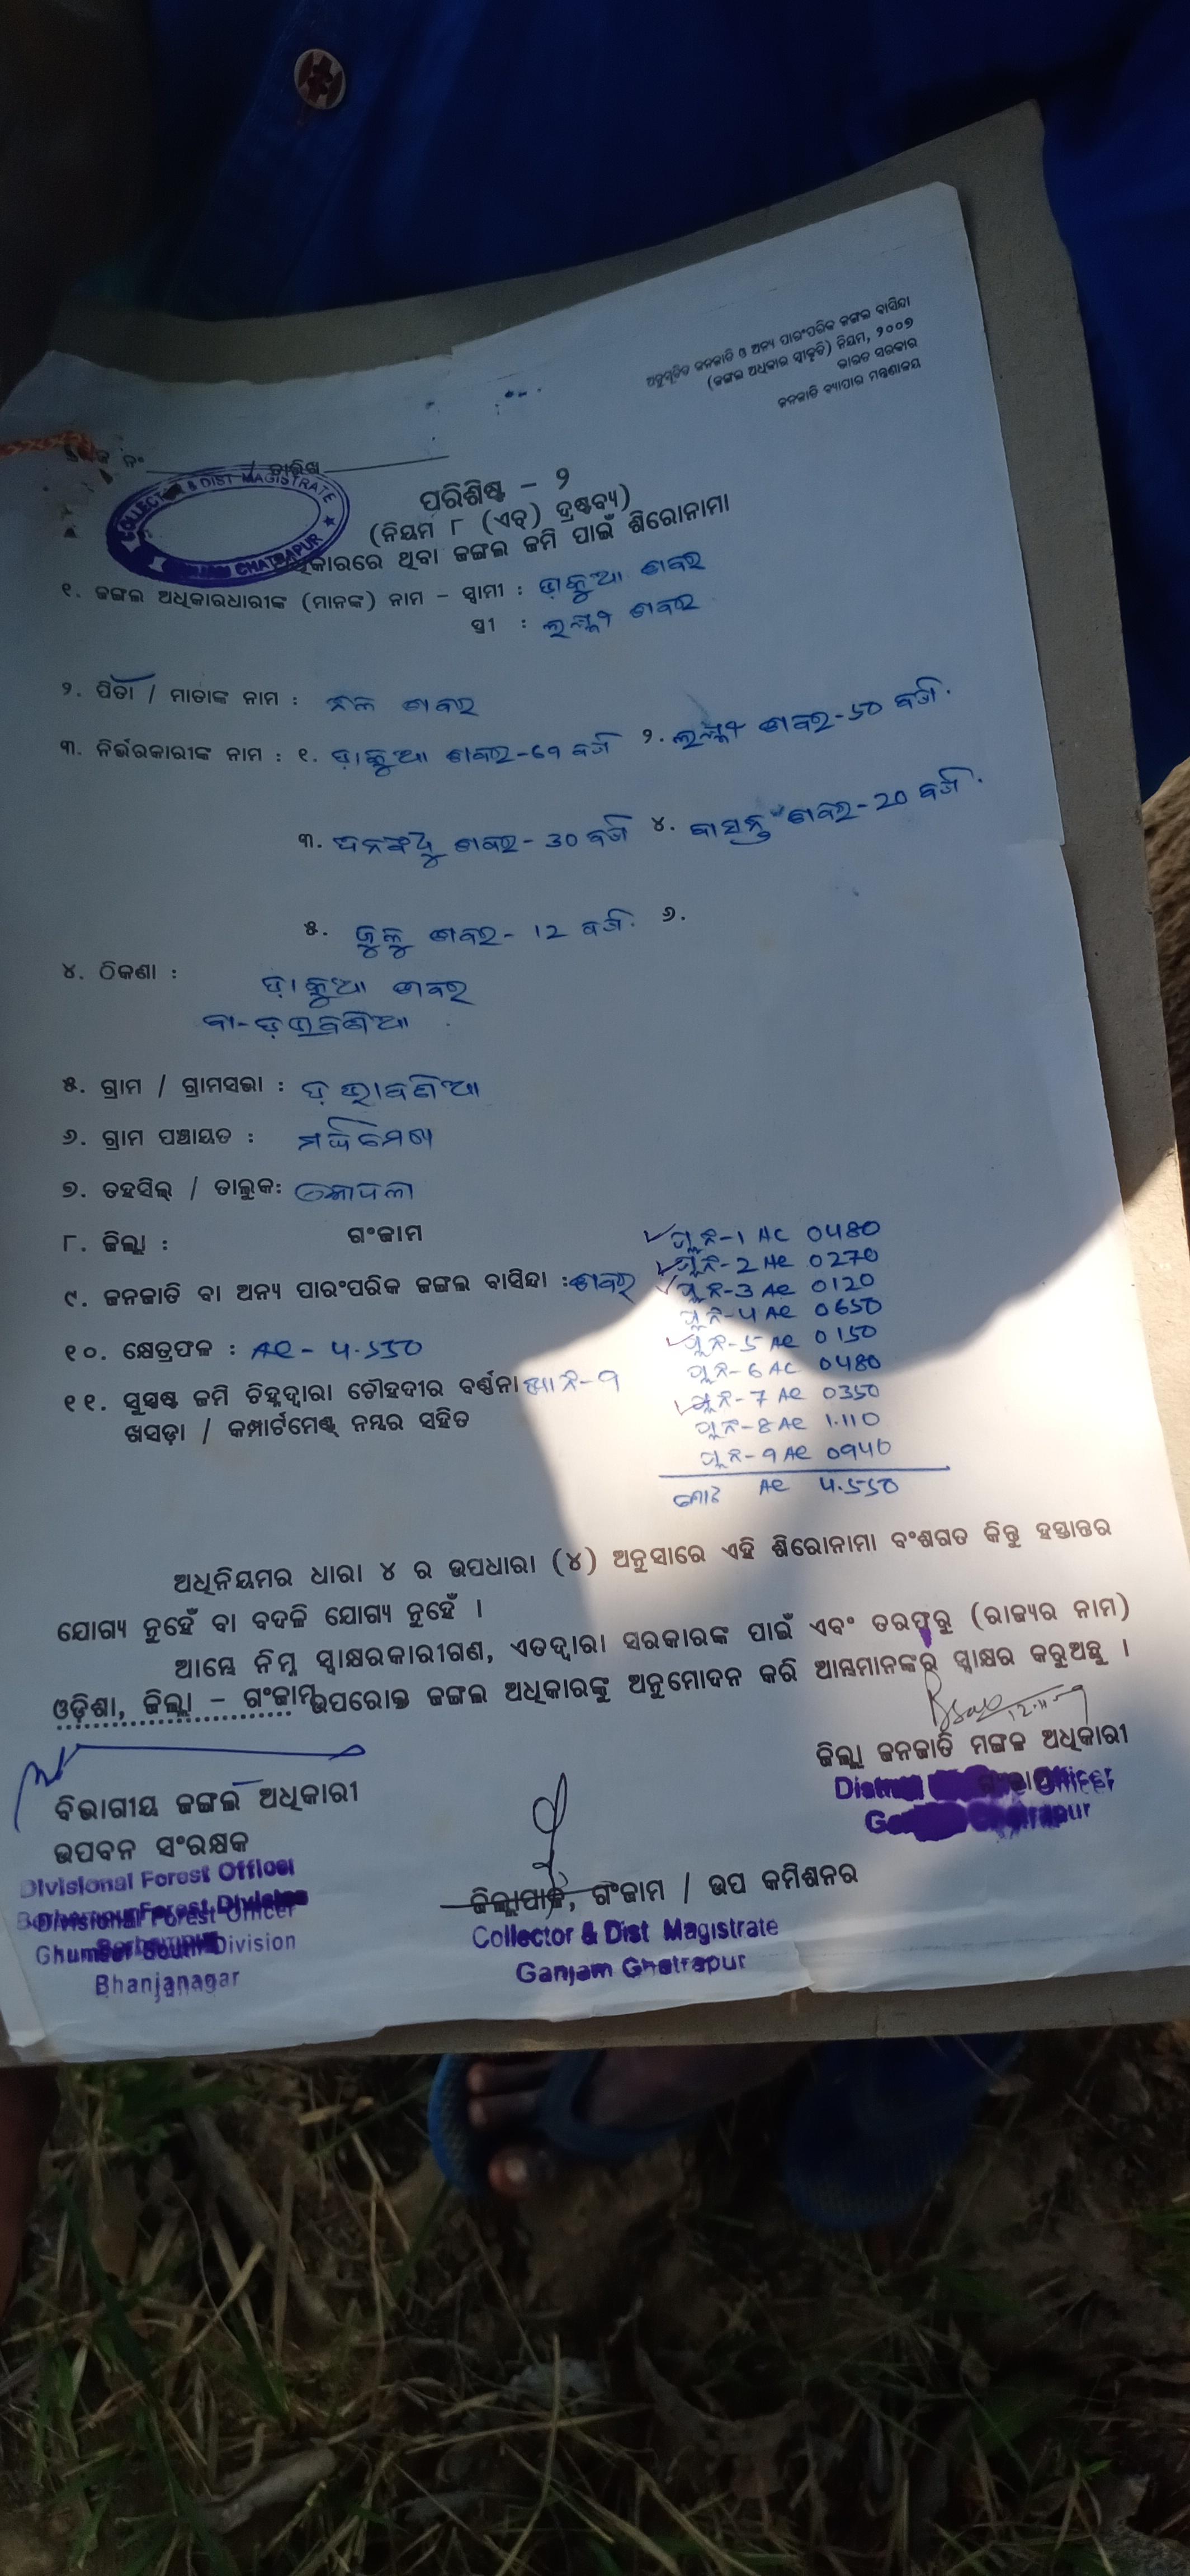 ଅନୁସୂଚିତ ଜନଜାତି ଓ ଅନ୍ୟ ପାରଂପରିକ ଜଙ୍ଗଲ ବାସିନ୍ଦା
(ଜଙ୍ଗଲ ଅଧିକାର ସ୍ୱୀକୃତି) ନିୟମ, ୨୦୦୭
ଭାରତ ସରକାର
ଜନଜାତି ବ୍ୟାପାର ମନ୍ତ୍ରଣାଳୟ
ନଂ / ତାରିଖ
COLLECTOR & DIST MAGISTRATE
CHATRAPUR
ପରିଶିଷ୍ଟ - ୨
(ନିୟମ ୮ (ଏଚ୍) ଦ୍ରଷ୍ଟବ୍ୟ)
ଅଧିକାରରେ ଥିବା ଜଙ୍ଗଲ ଜମି ପାଇଁ ଶିରୋନାମା
୧. ଜଙ୍ଗଲ ଅଧିକାରଧାରୀଙ୍କ (ମାନଙ୍କ) ନାମ - ସ୍ୱାମୀ : ଡ଼ାକୁଆ ଶବର
ସ୍ତ୍ରୀ : ଲକ୍ଷ୍ମୀ ଶବର
୨. ପିତା / ମାତାଙ୍କ ନାମ : ଶବର
୩. ନିର୍ଭରକାରୀଙ୍କ ନାମ : ୧. ଡ଼ାକୁଆ ଶବର-69 ବର୍ଷ ୨. ଲକ୍ଷ୍ମୀ ଶବର-50 ବର୍ଷ.
୩. ଶବର- 30 ବର୍ଷ ୪. ଶବର- 20 ବର୍ଷ.
୫. ଶବର- 12 ବର୍ଷ. ୬.
୪. ଠିକଣା :
ଡ଼ାକୁଆ ଶବର
୫. ଗ୍ରାମ / ଗ୍ରାମସଭା :
୬. ଗ୍ରାମ ପଞ୍ଚାୟତ :
୭. ତହସିଲ୍ / ତାଲୁକ:
୮. ଜିଲ୍ଲା : ଗଂଜାମ
୯. ଜନଜାତି ବା ଅନ୍ୟ ପାରଂପରିକ ଜଙ୍ଗଲ ବାସିନ୍ଦା : ଶବର
୧୦. କ୍ଷେତ୍ରଫଳ : AC - 4.550
୧୧. ସୁସ୍ପଷ୍ଟ ଜମି ଚିହ୍ନଦ୍ୱାରା ଚୌହଦୀର ବର୍ଣ୍ଣନା
ଖସଡ଼ା / କମ୍ପାର୍ଟମେଣ୍ଟ୍ ନମ୍ବର ସହିତ
ପ୍ଲ ନଂ-1 AC 0480
ପ୍ଲ ନଂ-2 AC 0270
ପ୍ଲ ନଂ-3 AC 0120
ପ୍ଲ ନଂ-4 AC 0650
ପ୍ଲ ନଂ-5 AC 0150
ପ୍ଲ ନଂ-6 AC 0480
ପ୍ଲ ନଂ-7 AC 0350
ପ୍ଲ ନଂ-8 AC 1.110
ପ୍ଲ ନଂ-9 AC 0940
ମୋଟ AC 4.550
ଅଧିନିୟମର ଧାରା ୪ ର ଉପଧାରା (୪) ଅନୁସାରେ ଏହି ଶିରୋନାମା ବଂଶଗତ କିନ୍ତୁ ହସ୍ତାନ୍ତର
ଯୋଗ୍ୟ ନୁହେଁ ବା ବଦଳି ଯୋଗ୍ୟ ନୁହେଁ ।
ଆମ୍ଭେ ନିମ୍ନ ସ୍ୱାକ୍ଷରକାରୀଗଣ, ଏତଦ୍ୱାରା ସରକାରଙ୍କ ପାଇଁ ଏବଂ ତରଫରୁ (ରାଜ୍ୟର ନାମ)
ଓଡ଼ିଶା, ଜିଲ୍ଲା - ଗଂଜାମ ଉପରୋକ୍ତ ଜଙ୍ଗଲ ଅଧିକାରଙ୍କୁ ଅନୁମୋଦନ କରି ଆମ୍ଭମାନଙ୍କର ସ୍ୱାକ୍ଷର କରୁଅଛୁ ।
ଜିଲ୍ଲା ଜନଜାତି ମଙ୍ଗଳ ଅଧିକାରୀ
ବିଭାଗୀୟ ଜଙ୍ଗଲ ଅଧିକାରୀ
ଉପବନ ସଂରକ୍ଷକ
Divisional Forest Officer
Divisional Forest Officer
Ghumsur South Division
Bhanjanagar
ଜିଲ୍ଲାପାଳ, ଗଂଜାମ / ଉପ କମିଶନର
Collector & Dist Magistrate
Ganjam Chatrapur